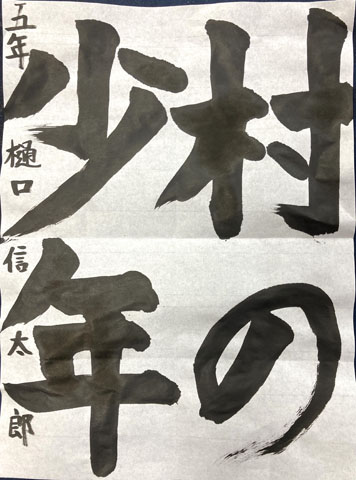 村の
少年
五年 樋口信太郎